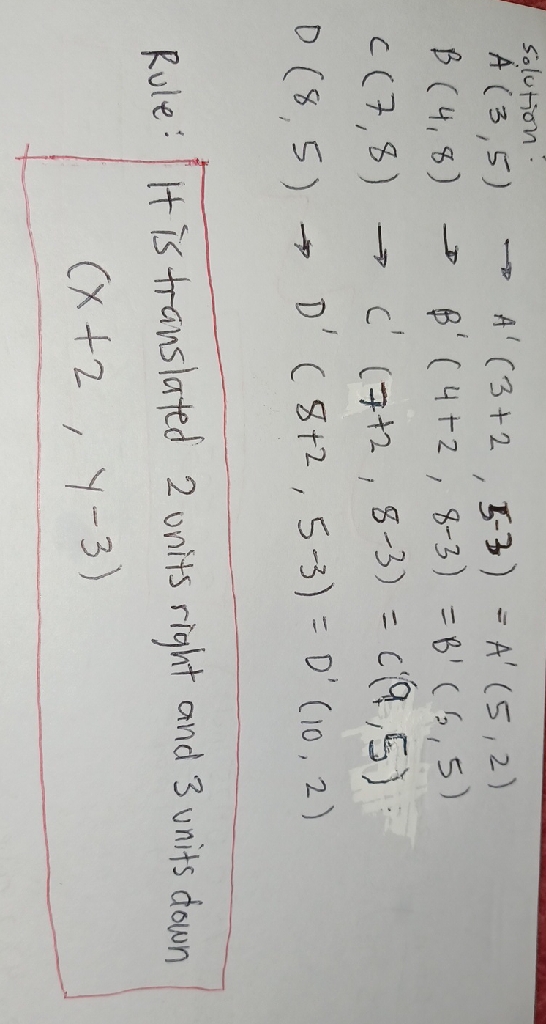 Solution:
A (3,5) → A' (3+2, 5-3) = A' (5,2)
B (4,8) → B' (4+2, 8-3) = B' (6,5)
C (7,8) → C' (7+2, 8-3) = C' (9,5)
D (8,5) → D' (8+2, 5-3) = D' (10,2)
Rule: It is translated 2 units right and 3 units down
(x+2, y-3)